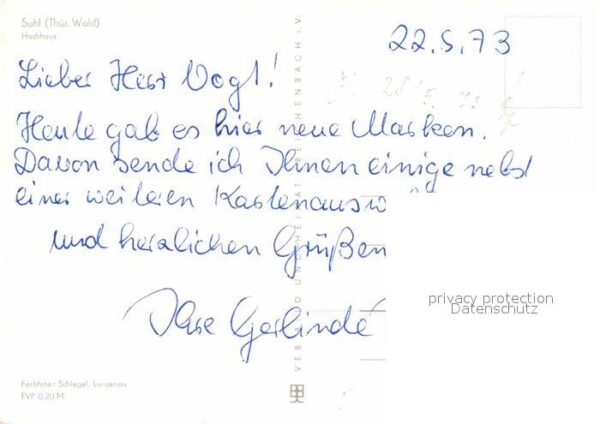 Suhl (Thür. Wald)
Hochhaus
22.5.73
Lieber Herr Vogt!
Heute gab es hier neue Marken.
Davon sende ich Ihnen einige nebst
einer weiteren Kartenausw
und herzlichen Grüßen
Ihre Gerlinde
privacy protection
Datenschutz
VEB BILD UND HEIMAT REICHENBACH i. V.
Farbfoto: Schlegel, Lunzenau
EVP 0,20 M